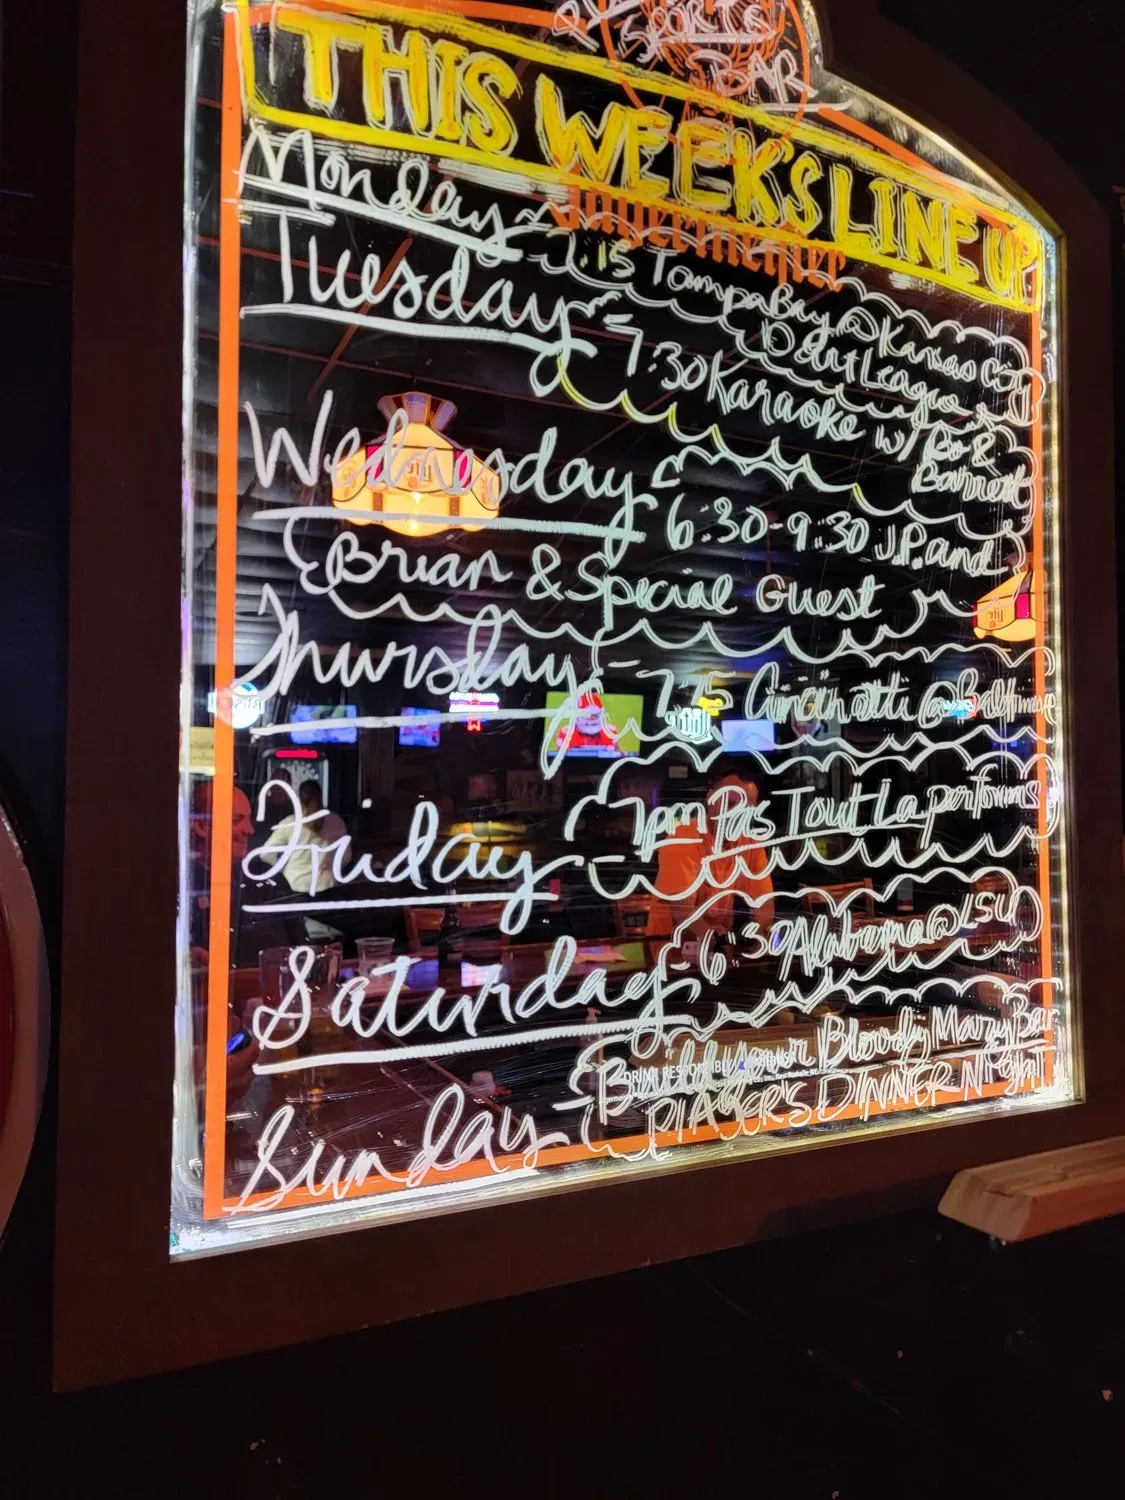 SPORTS
BAR
THIS WEEK'S LINE UP
Jägermeister
Monday - 7:15 Tampa Bay @ Kansas City
Dart League
Tuesday - 7:30 Karaoke w/
Barrett
Wednesday - 6:30-9:30 J.P. and
Brian & Special Guest
Thursday - 7:15 Cincinatti @ Baltimore
Friday - 7pm Pas Tout La performs
Saturday - 6:30 Alabama @ LSU
Sunday - Build your Bloody Mary Bar
DRINK RESPONSIBLY
PLAYER'S DINNER NIGHT